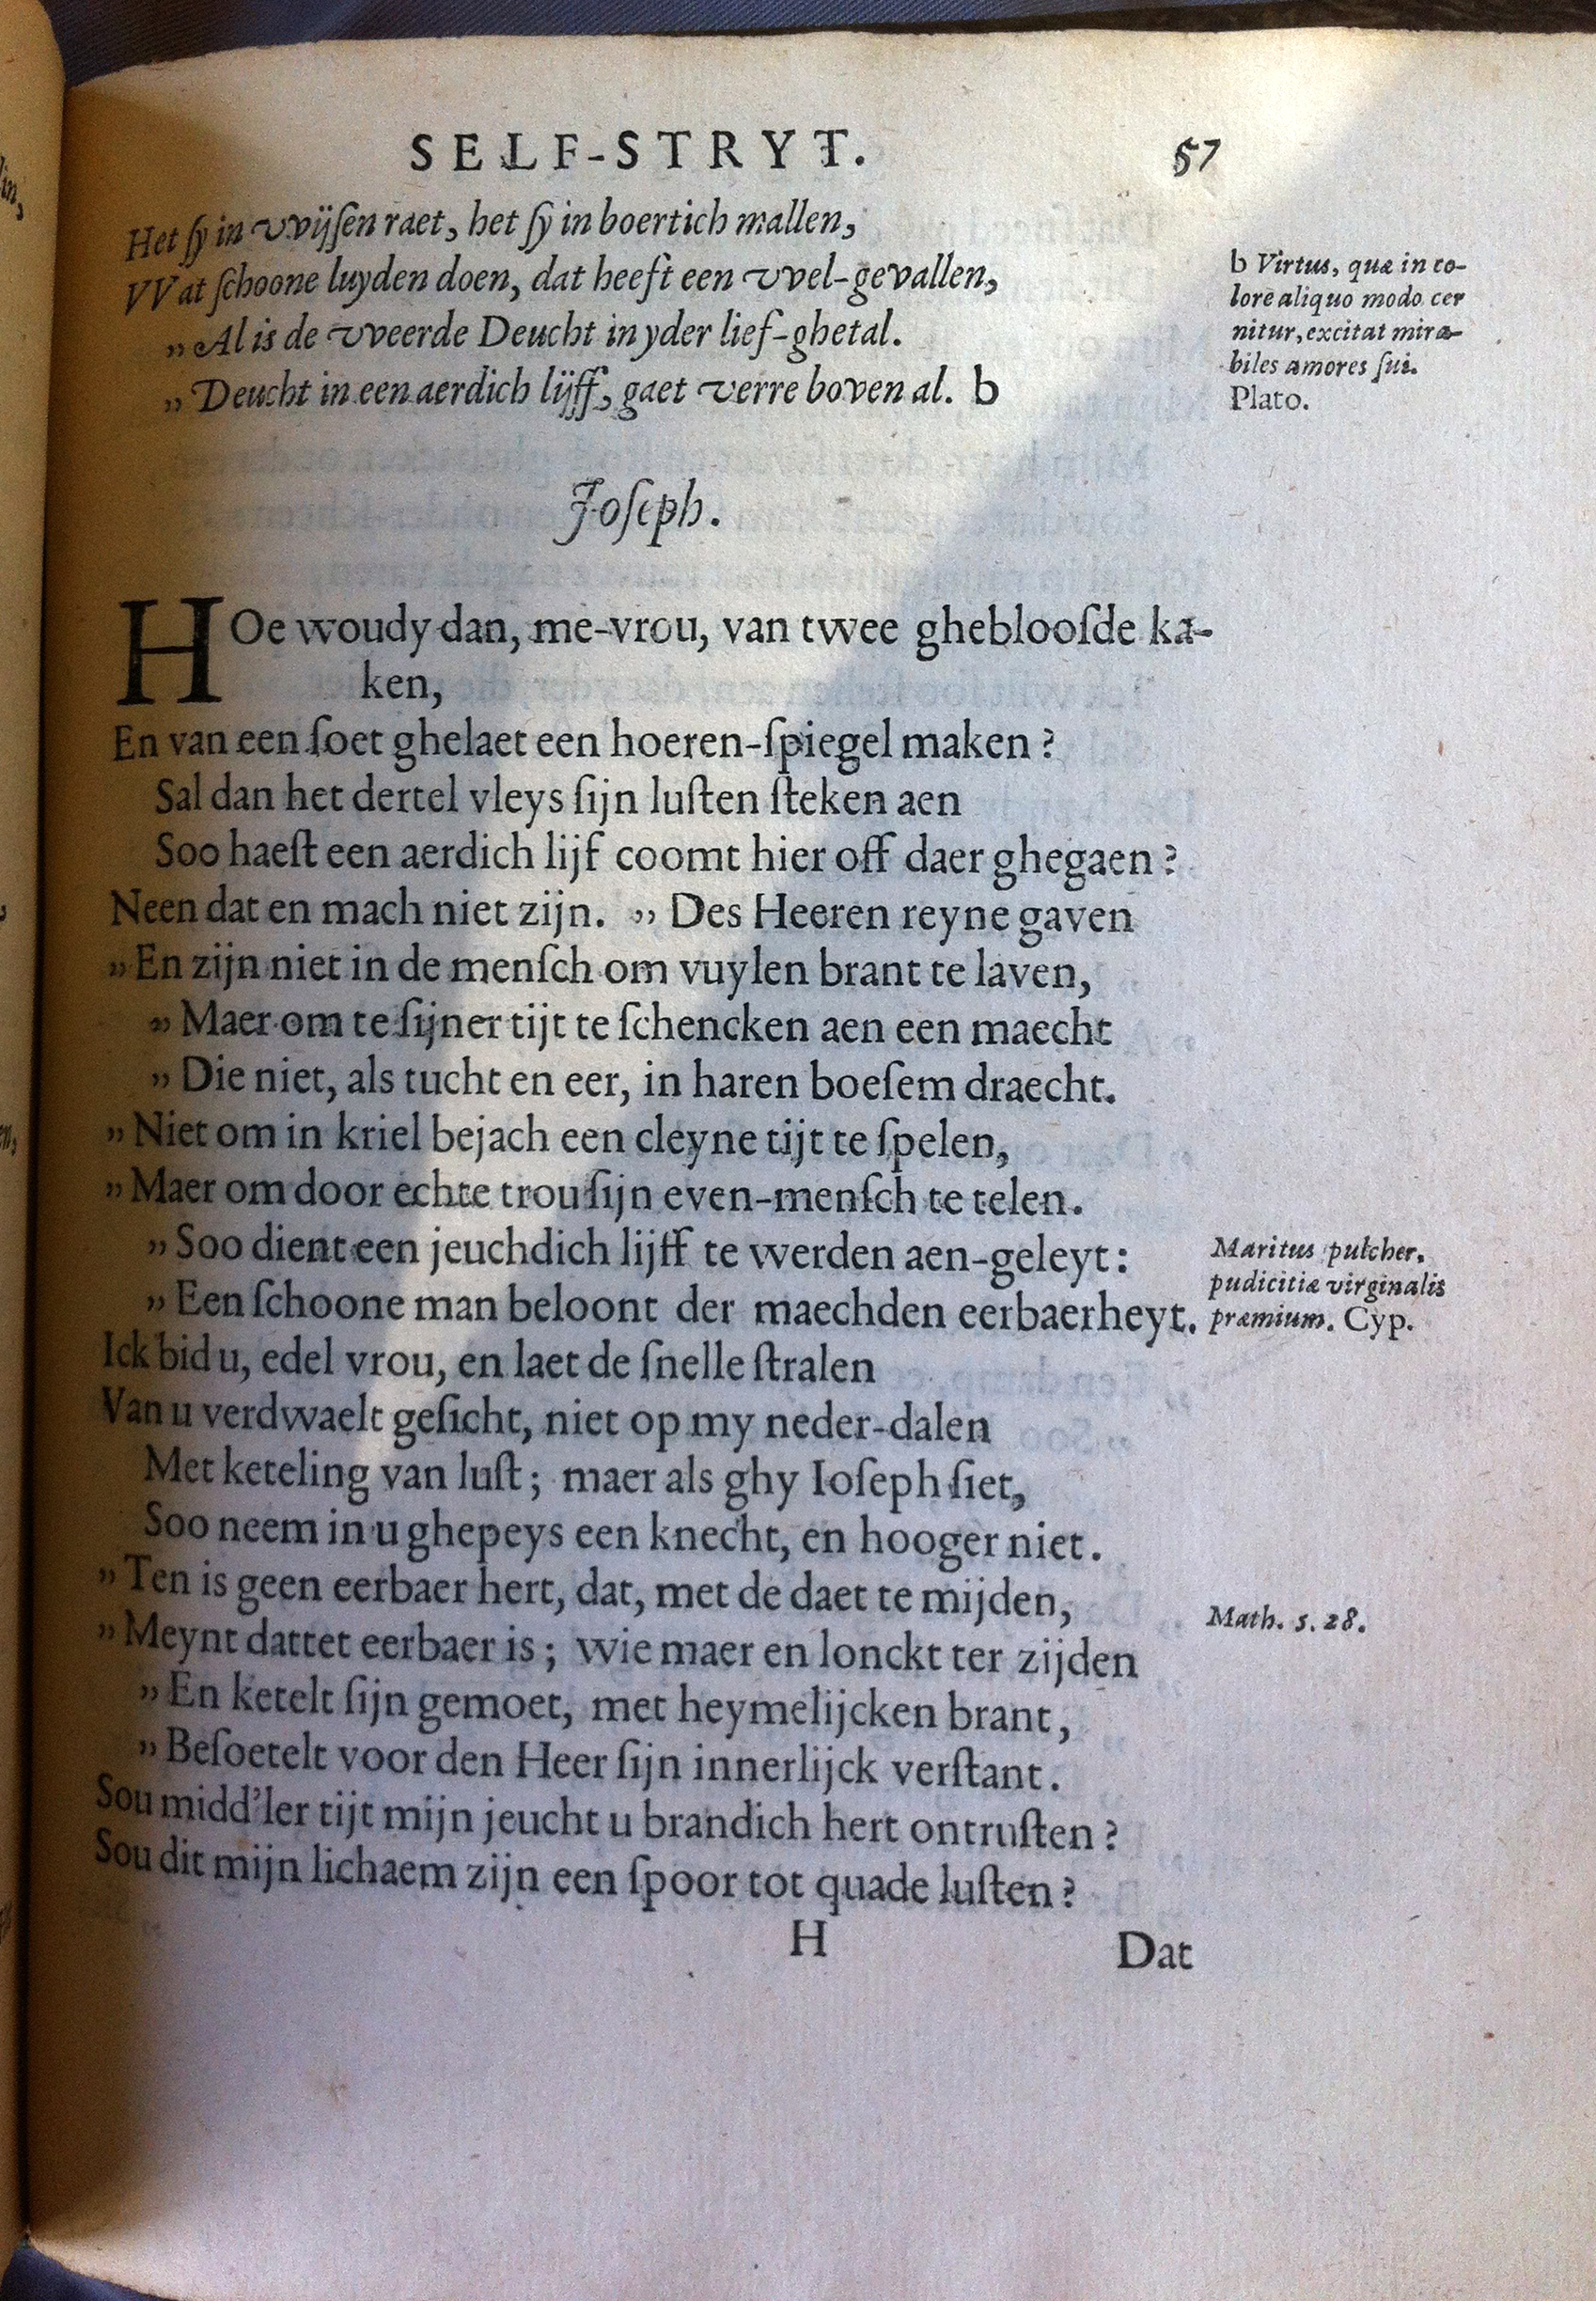 SELF-STRYT. 57
Het ſy in vvijſen raet, het ſy in boertich mallen,
VVat ſchoone luyden doen, dat heeft een vvel-gevallen,
„ Al is de vveerde Deucht in yder lief-ghetal.
„ Deucht in een aerdich lijff, gaet verre boven al. b
b Virtus, quæ in co-
lore aliquo modo cer
nitur, excitat mira-
biles amores ſui.
Plato.
Joſeph.
HOe woudy dan, me-vrou, van twee gheblooſde ka-
ken,
En van een ſoet ghelaet een hoeren-ſpiegel maken ?
Sal dan het dertel vleys ſijn luſten ſteken aen
Soo haeſt een aerdich lijf coomt hier off daer ghegaen ?
Neen dat en mach niet zijn. „ Des Heeren reyne gaven
„ En zijn niet in de menſch om vuylen brant te laven,
„ Maer om te ſijner tijt te ſchencken aen een maecht
„ Die niet, als tucht en eer, in haren boeſem draecht.
„ Niet om in kriel bejach een cleyne tijt te ſpelen,
„ Maer om door echte trou ſijn even-menſch te telen.
„ Soo dient een jeuchdich lijff te werden aen-geleyt :
„ Een ſchoone man beloont der maechden eerbaerheyt.
Maritus pulcher.
pudicitiæ virginalis
præmium. Cyp.
Ick bid u, edel vrou, en laet de ſnelle ſtralen
Van u verdwaelt geſicht, niet op my neder-dalen
Met keteling van luſt ; maer als ghy Ioſeph ſiet,
Soo neem in u ghepeys een knecht, en hooger niet.
„ Ten is geen eerbaer hert, dat, met de daet te mijden,
„ Meynt dattet eerbaer is ; wie maer en lonckt ter zijden
Math. 5. 28.
„ En ketelt ſijn gemoet, met heymelijcken brant,
„ Beſoetelt voor den Heer ſijn innerlijck verſtant.
Sou midd'ler tijt mijn jeucht u brandich hert ontruſten ?
Sou dit mijn lichaem zijn een ſpoor tot quade luſten ?
H Dat